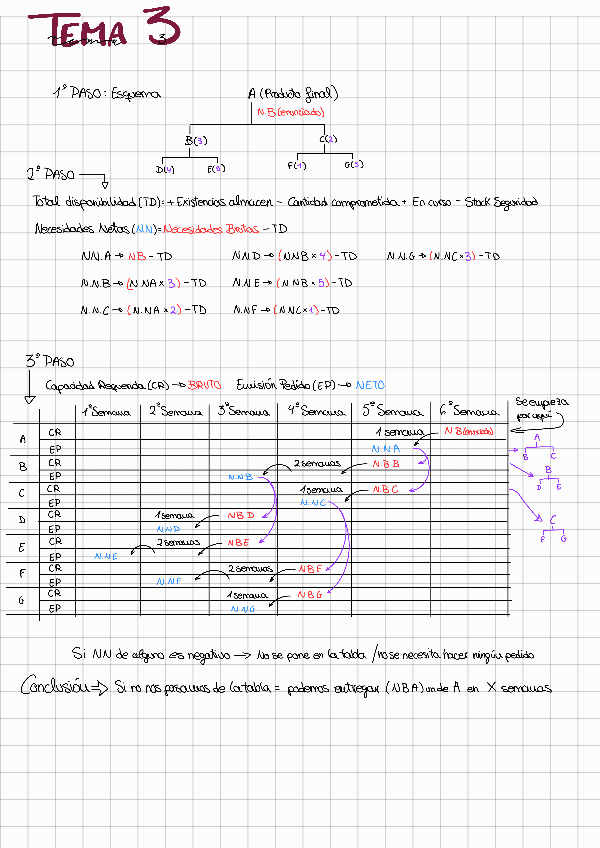 TEMA 3
1º PASO: Esquema
A (Producto final)
N.B (enunciado)
B(3) C(2)
D(4) E(5) F(1) G(3)
2º PASO
Total disponibilidad (TD) = + Existencias almacen - Cantidad comprometida + En curso - Stock Seguridad
Necesidades Netas (NN) = Necesidades Brutas - TD
NN.A → NB - TD NN.D → (NNB x 4) - TD N.N.G → (N.NC x 3) - TD
N.N.B → (N.NA x 3) - TD N.N.E → (N.NB x 5) - TD
N.N.C → (N.NA x 2) - TD N.NF → (N.NC x 1) - TD
3º PASO
Capacidad Requerida (CR) → BRUTO Emisión Pedido (EP) → NETO
Se empieza por aquí
1ª Semana 2ª Semana 3ª Semana 4ª Semana 5ª Semana 6ª Semana
A CR 1 semana N.B (enunciado)
EP N.NA
B CR 2 semanas N.B B
EP N.NB
C CR 1 semana N.B C
EP N.NC
D CR 1 semana NBD
EP N.ND
E CR 2 semanas NBE
EP N.NE
F CR 2 semanas NBF
EP N.NF
G CR 1 semana NBG
EP N.NG
A
B C
B
D E
C
F G
Si NN de alguno es negativo → No se pone en la tabla / no se necesita hacer ningún pedido
Conclusión ⇒ Si no nos pasamos de la tabla = podemos entregar (NBA) unde A en X semanas